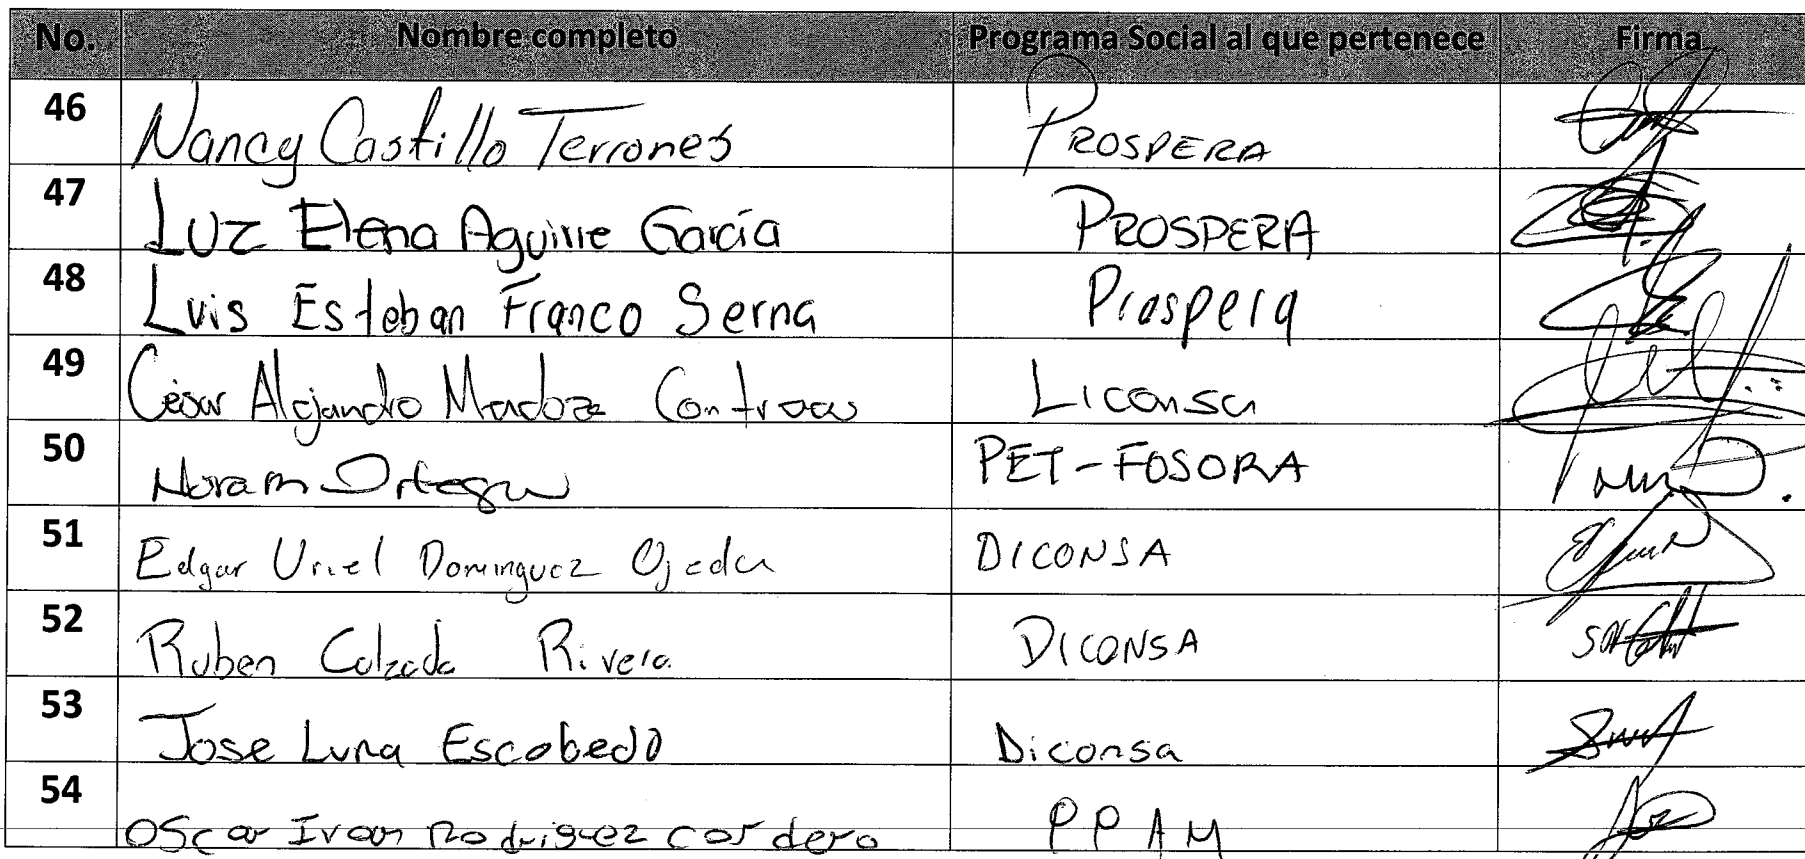 No. Nombre completo Programa Social al que pertenece Firma
46 Nancy Castillo Terrones PROSPERA
47 Luz Elena Aguirre García PROSPERA
48 Luis Esteban Franco Serna Prospera
49 César Alejandro Mendoza Contreras Liconsa
50 Ortega PET-FOSORA
51 Edgar Uriel Dominguez Ojeda DICONSA
52 Ruben Calzada Rivera DICONSA
53 Jose Luna Escobedo Diconsa
54 Oscar Ivan Rodriguez cordero PPAM